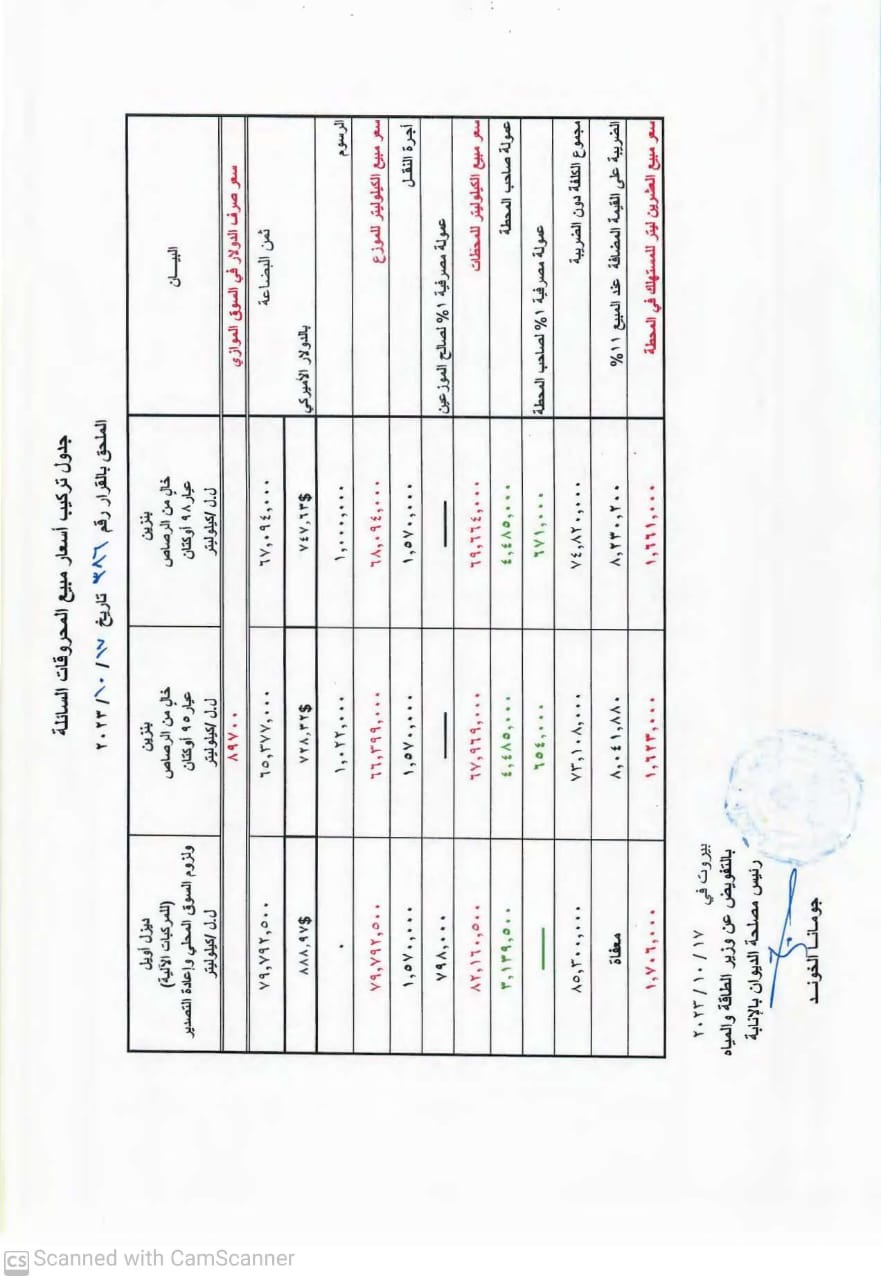 جدول تركيب أسعار مبيع المحروقات السائلة
الملحق بالقرار رقم ٣٨٦ تاريخ ١٧/ ١٠/ ٢٠٢٣
البيـــان
بنزين
خالٍ من الرصاص
عيار ٩٨ أوكتان
ل.ل/كيلوليتر
بنزين
خالٍ من الرصاص
عيار ٩٥ أوكتان
ل.ل/كيلوليتر
ديزل أويل
(للمركبات الآلية)
ولزوم السوق المحلي وإعادة التصدير
ل.ل/كيلوليتر
سعر صرف الدولار في السوق الموازي ٨٩٧٠٠
ثمن البضاعة ٦٧,٠٩٤,٠٠٠ ٦٥,٣٧٧,٠٠٠ ٧٩,٧٩٢,٥٠٠
بالدولار الأميركي ٧٤٧,٦٣$ ٧٢٨,٣٢$ ٨٨٨,٩٧$
الرسوم ١,٠٠٠,٠٠٠ ١,٠٢٢,٠٠٠ ٠
سعر مبيع الكيلوليتر للموزع ٦٨,٠٩٤,٠٠٠ ٦٦,٣٩٩,٠٠٠ ٧٩,٧٩٢,٥٠٠
أجرة النقل ١,٥٧٠,٠٠٠ ١,٥٧٠,٠٠٠ ١,٥٧٠,٠٠٠
عمولة مصرفية ١% لصالح الموزعين — — ٧٩٨,٠٠٠
سعر مبيع الكيلوليتر للمحطات ٦٩,٦٦٤,٠٠٠ ٦٧,٩٦٩,٠٠٠ ٨٢,١٦٠,٥٠٠
عمولة صاحب المحطة ٤,٤٨٥,٠٠٠ ٤,٤٨٥,٠٠٠ ٣,١٣٩,٥٠٠
عمولة مصرفية ١% لصاحب المحطة ٦٧١,٠٠٠ ٦٥٤,٠٠٠ —
مجموع الكلفة دون الضريبة ٧٤,٨٢٠,٠٠٠ ٧٣,١٠٨,٠٠٠ ٨٥,٣٠٠,٠٠٠
الضريبة على القيمة المضافة عند المبيع ١١% ٨,٢٣٠,٢٠٠ ٨,٠٤١,٨٨٠ معفاة
سعر مبيع العشرين ليتر للمستهلك في المحطة ١,٦٦١,٠٠٠ ١,٦٢٣,٠٠٠ ١,٧٠٦,٠٠٠
بيروت في ١٧ / ١٠ / ٢٠٢٣
بالتفويض عن وزير الطاقة والمياه
رئيس مصلحة الديوان بالإنابة
جومانا الخونـــد
CS Scanned with CamScanner